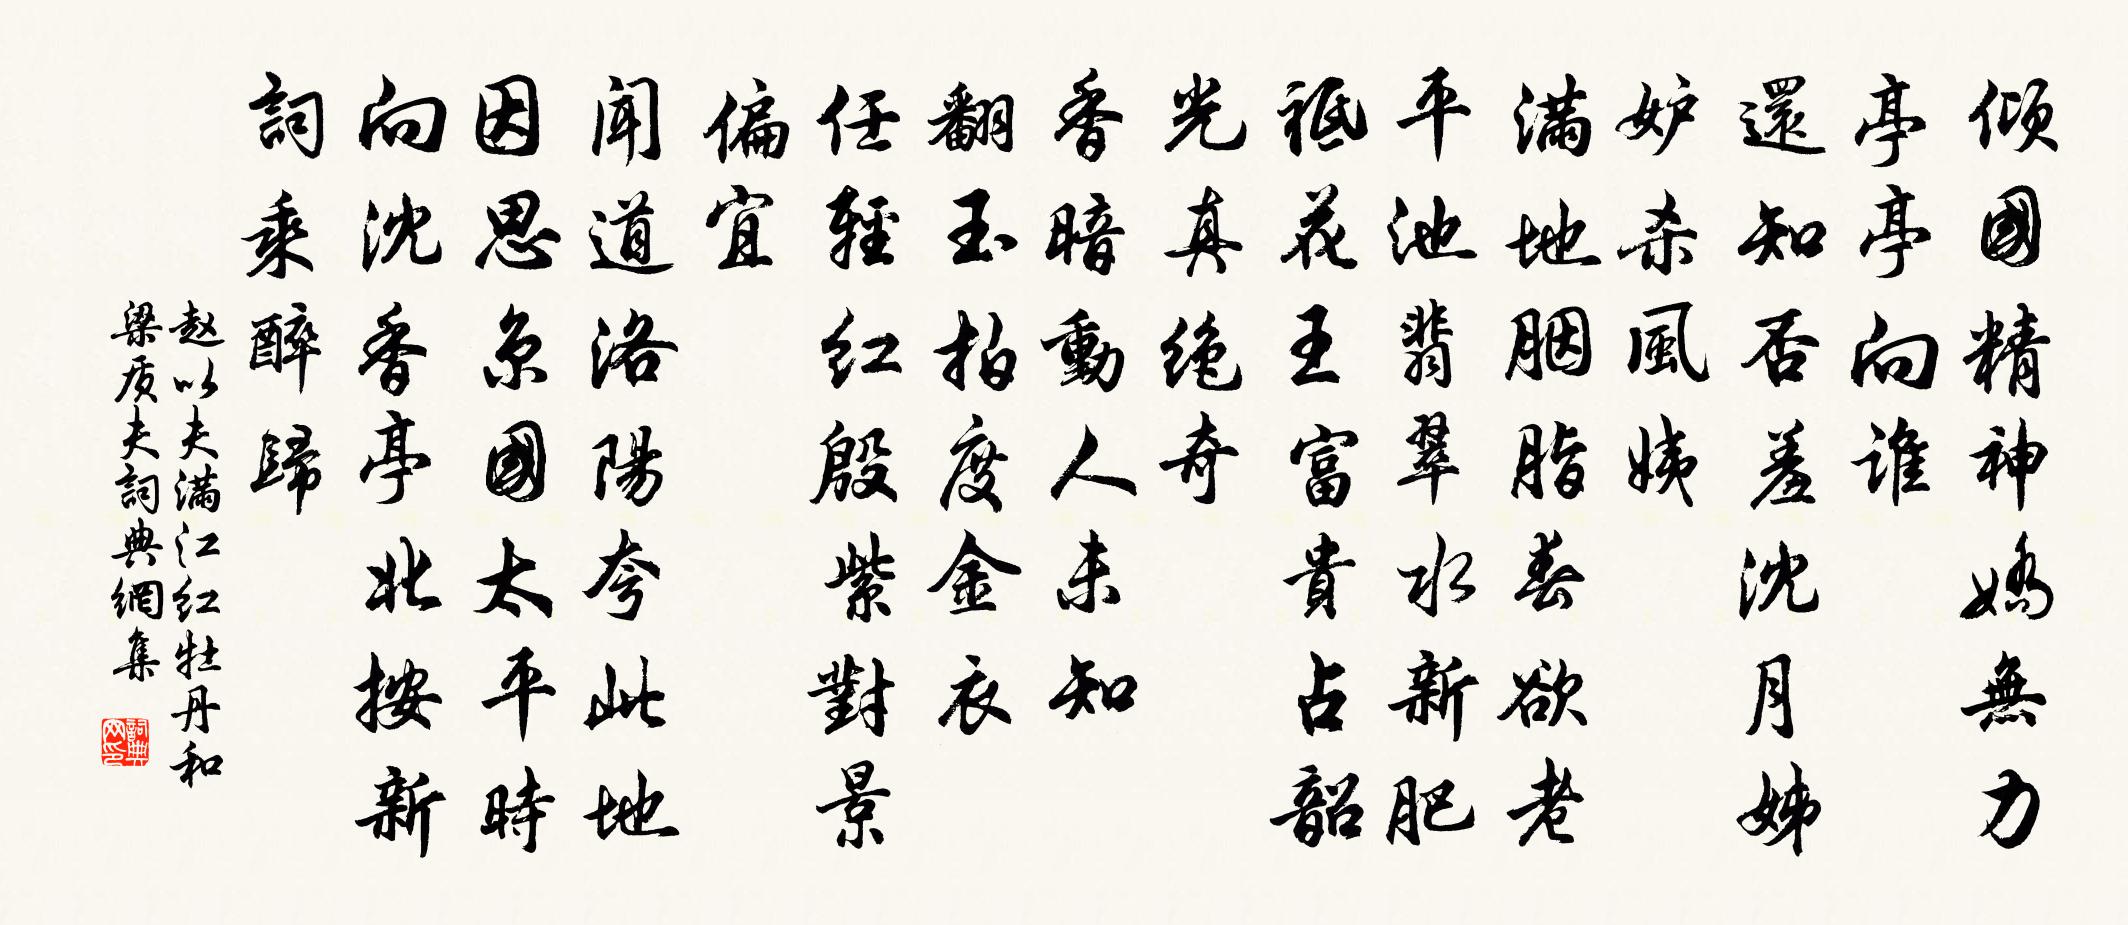 傾國精神嬌無力
亭亭向誰
還知否羞沈月姊
妒杀風姨
滿地胭脂春欲老
平池翡翠水新肥
祗花王富貴占韶
光真绝奇
香暗動人未知
翻玉拍度金衣
任輕红殷紫對景
偏宜
闻道洛陽夸此地
因思京國太平時
向沈香亭北按新
詞乘醉歸
赵以夫滿江红牡丹和
梁质夫詞典網集
詞典
网印